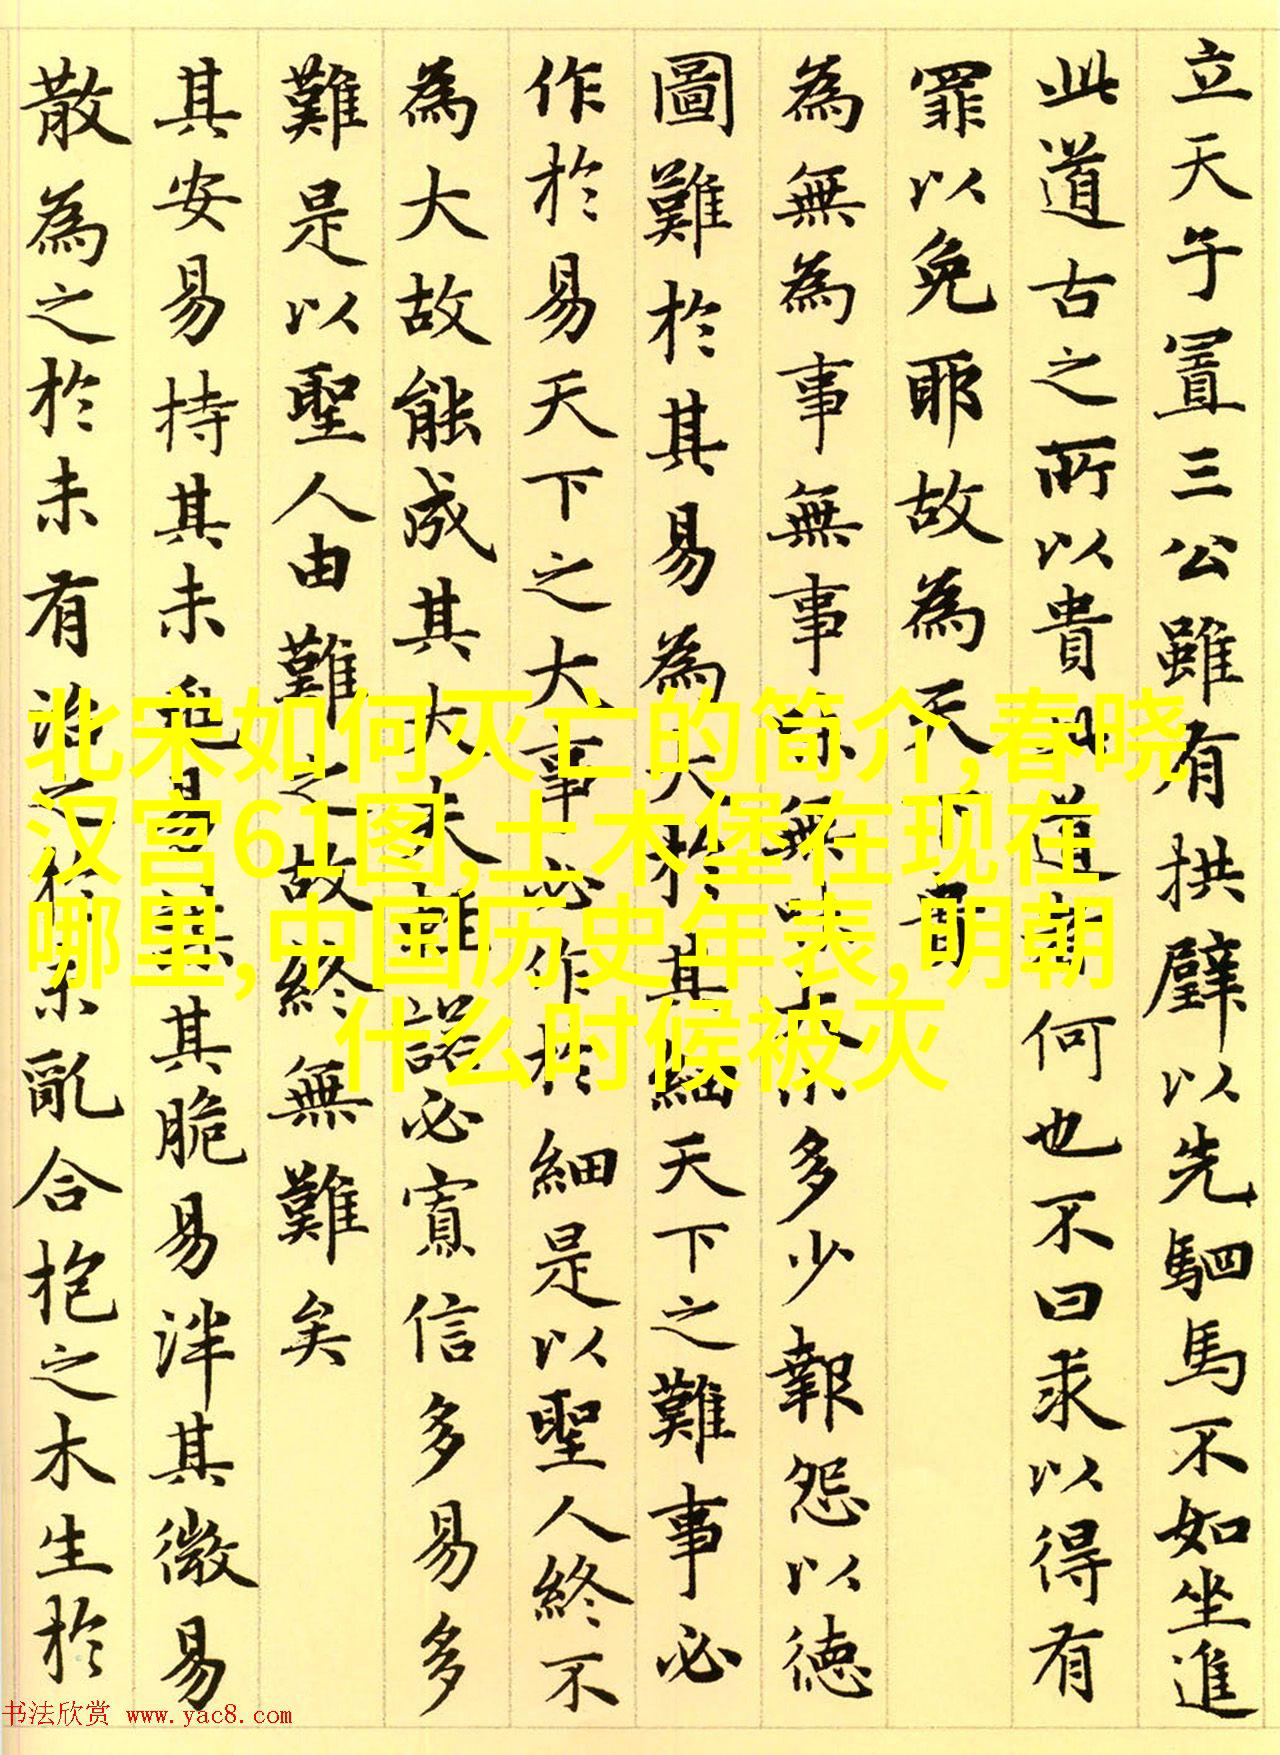 立天子置三公雖有拱璧以先駟馬不如坐進
此道古之所以貴此道者何也不曰求以得有
罪以免耶故為天下貴
為無為事無事味無味大小多少報怨以德
圖難於其易為大於其細天下之難事必
作於易天下之大事必作於細是以聖人終不
為大故能成其大夫輕諾必寡信多易多
難是以聖人由難之故終無難矣
其安易持其未兆易謀其脆易泮其微易
散為之於未有治之於未亂合抱之木生於
北宋如何灭亡的简介,春晓
汉宫61图,土木堡在现在
哪里,中国历史年表,明朝
什么时候被灭
书法欣赏 www.yac8.com